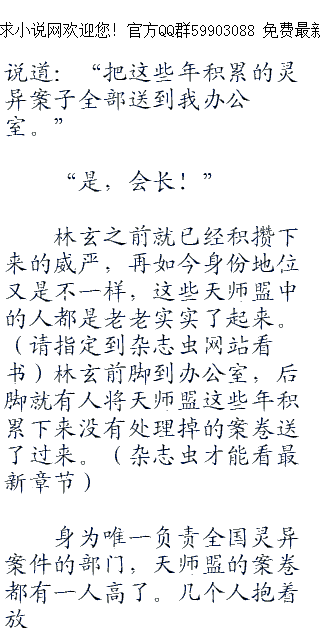 求小说网欢迎您！官方QQ群59903088 免费最新
说道：“把这些年积累的灵
异案子全部送到我办公
室。”
“是，会长！”
林玄之前就已经积攒下
来的威严，再如今身份地位
又是不一样，这些天师盟中
的人都是老老实实了起来。
（请指定到杂志虫网站看
书）林玄前脚到办公室，后
脚就有人将天师盟这些年积
累下来没有处理掉的案卷送
了过来。（杂志虫才能看最
新章节）
身为唯一负责全国灵异
案件的部门，天师盟的案卷
都有一人高了。几个人抱着
放